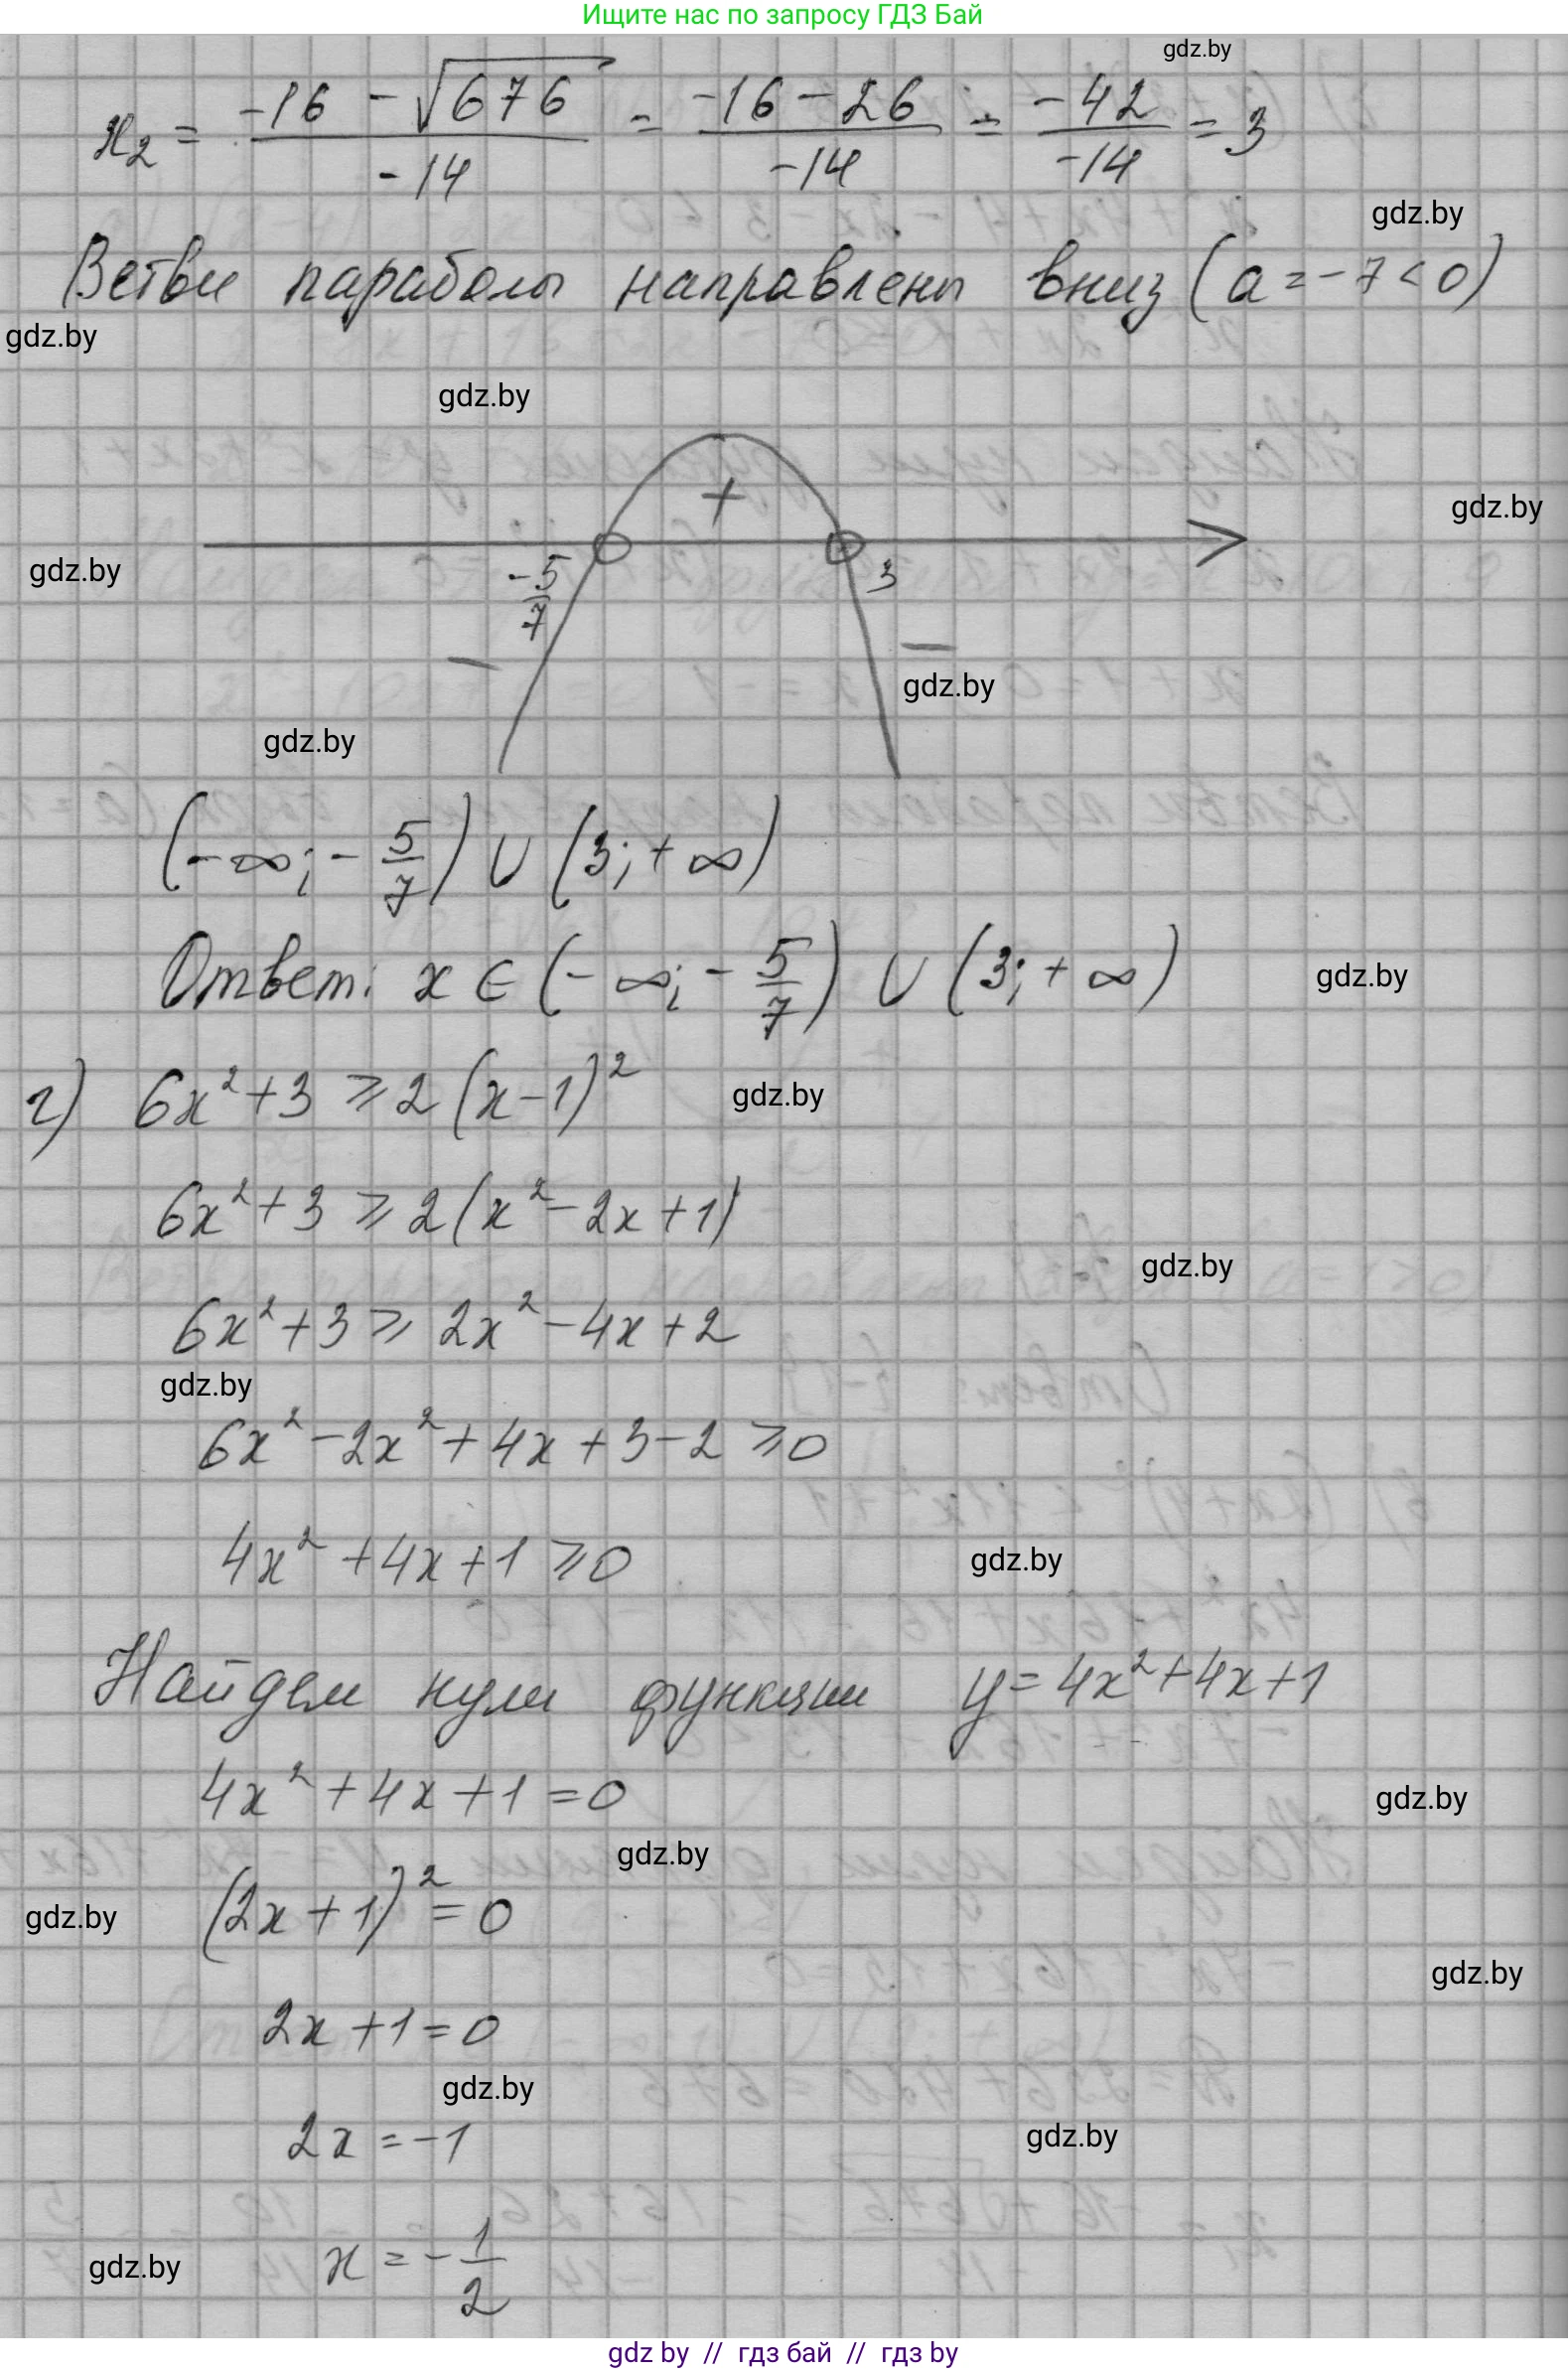 Ищите нас по запросу ГДЗ Бай
gdz.by
x₂ = (-16 - √676)/(-14) = (-16 - 26)/(-14) = (-42)/(-14) = 3
gdz.by
Ветви параболы направлены вниз (a = -7 < 0)
gdz.by
gdz.by
+
gdz.by
gdz.by
-5/7
3
−
−
gdz.by
gdz.by
(-∞; -5/7) ∪ (3; +∞)
Ответ: x ∈ (-∞; -5/7) ∪ (3; +∞)
gdz.by
г) 6x² + 3 ⩾ 2(x-1)²
gdz.by
6x² + 3 ⩾ 2(x² - 2x + 1)
gdz.by
6x² + 3 ⩾ 2x² - 4x + 2
gdz.by
6x² - 2x² + 4x + 3 - 2 ⩾ 0
4x² + 4x + 1 ⩾ 0
gdz.by
Найдем нули функции y = 4x² + 4x + 1
4x² + 4x + 1 = 0
gdz.by
gdz.by
(2x + 1)² = 0
gdz.by
gdz.by
2x + 1 = 0
gdz.by
2x = -1
gdz.by
x = -1/2
gdz.by
gdz by // гдз бай // гдз by